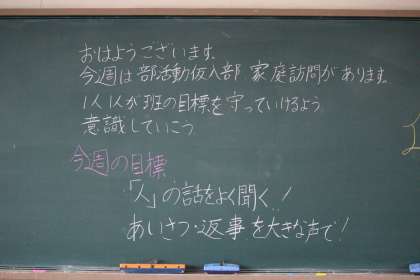 おはようございます。
今週は部活動仮入部 家庭訪問があります。
1人1人が班の目標を守っていけるよう
意識していこう
今週の目標
「人」の話をよく聞く!
あいさつ・返事を大きな声で!